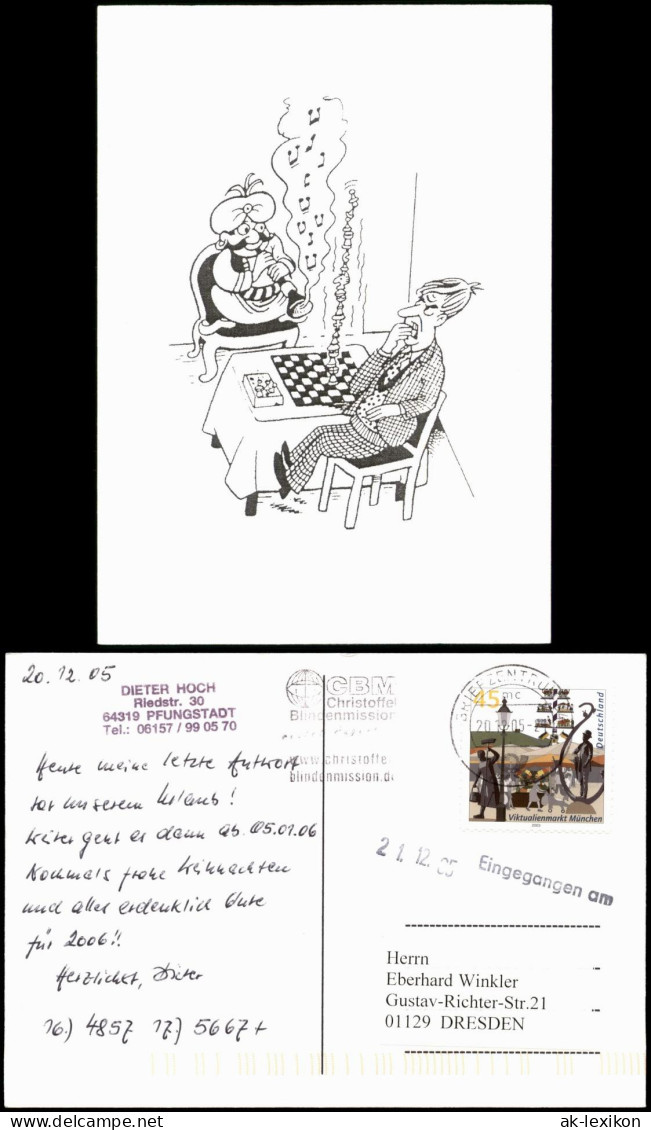 20.12.05
DIETER HOCH
Riedstr. 30
64319 PFUNGSTADT
Tel.: 06157 / 99 05 70
CBM
Christoffel
Blindenmission
www.christoffel
blindenmission.de
BRIEFZENTRUM
20.12.05
45
Deutschland
Viktualienmarkt München
Heute meine letzte Antwort
vor unserem Urlaub!
Weiter geht es dann ab 05.01.06
Nochmals frohe Weihnachten
und alles erdenklich Gute
für 2006!!
Herzlichst, Dieter
16.) 4857 17.) 5667+
21. 12. 05 Eingegangen am
Herrn
Eberhard Winkler
Gustav-Richter-Str.21
01129 DRESDEN
ak-lexikon.com